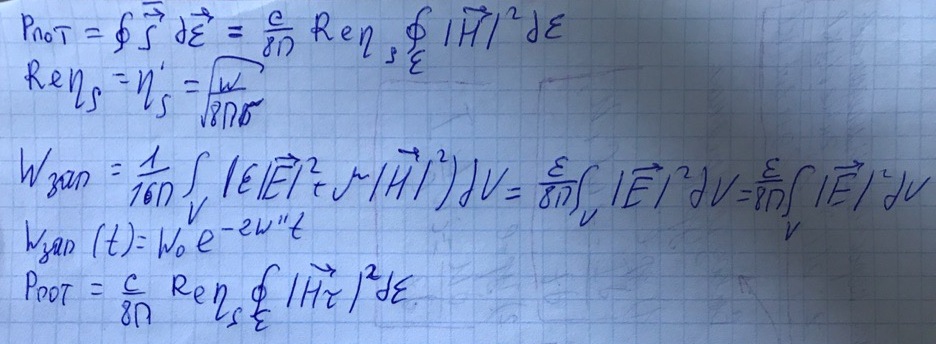 Pпот = ∮ S⃗ dΣ⃗ = c/8π Re η_s ∮_Σ |H⃗|² dΣ
Re η_s = η'_s = √(ω/8πσ)
Wзап = 1/16π ∫_V (ε|E⃗|² + μ|H⃗|²) dV = ε/8π ∫_V |E⃗|² dV = ε/8π ∫_V |E⃗|² dV
Wзап (t) = W₀ e^(-2ω''t)
Pпот = c/8π Re η_s ∮_Σ |H⃗τ|² dΣ